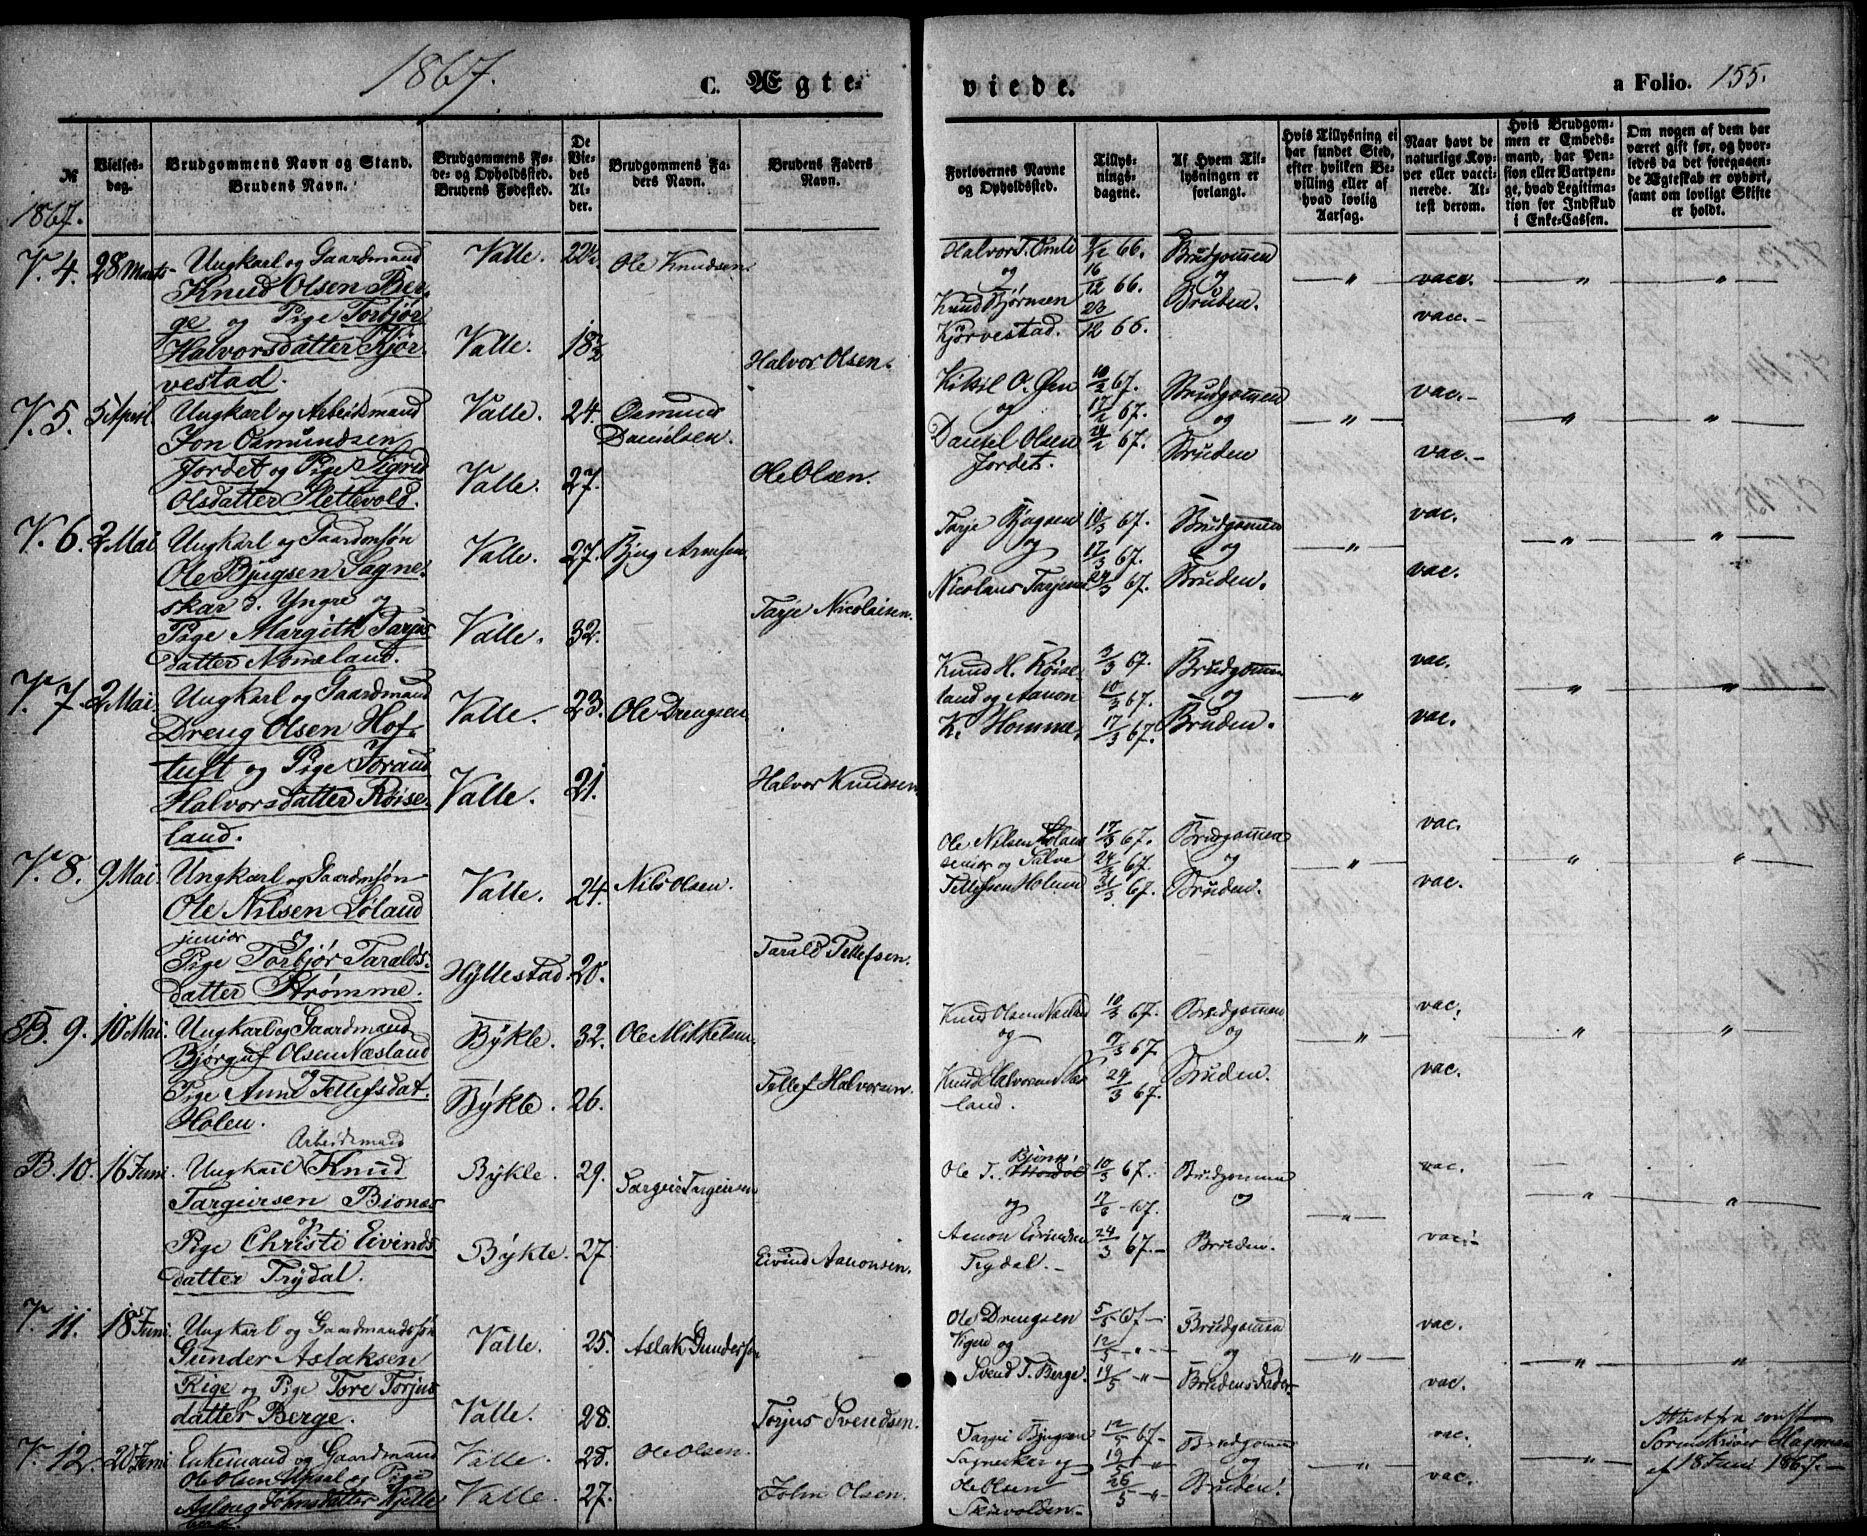 1867.
C. Ægte-
viede.
a Folio. 155.
№
Vielses-
dag.
Brudgommens Navn og Stand.
Brudens Navn.
Brudgommens Fø-
de- og Opholdssted.
Brudens Fødested.
De
Vie-
des
Al-
der.
Brudgommens Fa-
ders Navn.
Brudens Faders
Navn.
Forlovernes Navne
og Opholdssted.
Tillys-
nings-
dagene.
Af Hvem Til-
lysningen er
forlangt.
Hvis Tillysning ei
har fundet Sted,
efter hvilken Be-
villing eller af
hvad lovlig
Aarsag.
Naar havt de
naturlige Kop-
per eller vacci-
nerede. At-
test derom.
Hvis Brudgom-
men er Embeds-
mand, har Pen-
sion eller Vartpen-
ge, hvad Legitima-
tion for Indskud
i Enke-Cassen.
Om nogen af dem har
været gift før, og hvor-
ledes da det foregaaen-
de Ægteskab er ophørt,
samt om lovligt Skifte
er holdt.
1867.
V. 4. 28 Marts Ungkarl og Gaardmand Valle. Ole Knudsen.
Knud Olsen Ber-
ge og Pige Torbjør
Halvorsdatter Kjør- Valle. 18½ Halvor Olsen.
vestad.
Halvor T. Omli 66. Brudgommen
og 16/12 66. og " vacc. " "
Knud Bjørnsen 23/12 66. Bruden. vacc.
Kjørvestad.
V. 5. 5 April. Ungkarl og Arbeidsmand Valle. 24. Osmund
Jon Osmundsen Danielsen.
Jordet og Pige Sigrid Valle. 27. Ole Olsen.
Olsdatter Flettevold.
10/2 67. Brudgommen vac.
og 17/2 67. og " " "
Daniel Olsen 24/2 67. Bruden vac.
Jordet.
V. 6. 2 Mai Ungkarl og Gaardmsøn Valle. 27. Bjug Arnesen
Ole Bjugsen Sagne-
skar d. Yngre og Tarje Nicolaisen.
Pige Margith Tarjus Valle. 32.
datter Nomeland.
Tarje Bjugsen 10/3 67. Brudgommen vac.
og 17/3 67. og " " "
Nicolaus Tarjesen 24/3 67. Bruden. vac.
V. 7. 2 Mai. Ungkarl og Gaardmand Valle. 23. Ole Drengsen
Dreng Olsen Hof-
tuft og Pige Toraud Halvor Knudsen.
Halvorsdatter Røise- Valle. 21.
land.
Knud H. Røise- 3/3 67. Brudgommen vac.
land og Aanon 10/3 67. og " " "
K. Homme. 17/3 67. Bruden. vac.
V. 8. 9 Mai. Ungkarl og Gaardmsøn Valle. 24. Nils Olsen.
Ole Nilsen Løland
junior og
Pige Torbjør Taralds- Hyllestad. 20. Tarald Tellefsen.
datter Strømme.
Ole Nilsen Løland 17/3 67. Brudgommen vac.
senior og Salve 24/3 67. og " " "
Tellefsen Holum 31/3 67. Bruden. vac.
B. 9. 10 Mai. Ungkarl og Gaardmand Bykle. 32. Ole Mikkelsen.
Bjørguf Olsen Næsland
og
Pige Anne Tellefsdat. Bykle. 26. Tellef Halvorsen.
Holen.
Knud Olsen Næsland 10/3 67. Brudgommen vac.
og 67. og " " "
Knud Halvorsen 24/3 67. Bruden. vac.
land.
B. 10. 16 Juni. Ungkarl Arbeidsmand Knud Bykle. 29. Targeir Targeirsen
Targeirsen Bionæs
og
Pige Christi Eivinds Bykle. 27 Eivind Aanonsen.
datter Trydal.
Ole T. 10/3 67. Brudgommen vac.
og 67. og " " "
Aanon Eivindsen 24/3 67. Bruden. vac.
Trydal.
V. 11. 18 Juni. Ungkarl og Gaardmandssøn Valle. 25. Aslak Gundersen
Gunder Aslaksen
Rige og Pige Tore Torjus Torjus Svendsen.
datter Berge. Valle. 28.
Ole Drengsen 5/5 67. Brudgommen vac.
Vigeid og 12/5 " og " " "
Svend T. Berge. 19/5 " Brudens Fader vac.
V. 12. 20 Juni Enkemand og Gaardmand Valle. 28. Ole Olsen.
Ole Olsen Upsal og Pige
Aslaug Johnsdatter Kjelle Valle. 27. John Olsen.
berg.
Tarjei Bjugsen 12/5 67. Brudgommen vac. Attest fra const.
Sagneskar og 19/5 " og " " Sorenskriver
Ole Olsen 26/5 " Bruden. vac. af 18 Juni 1867.